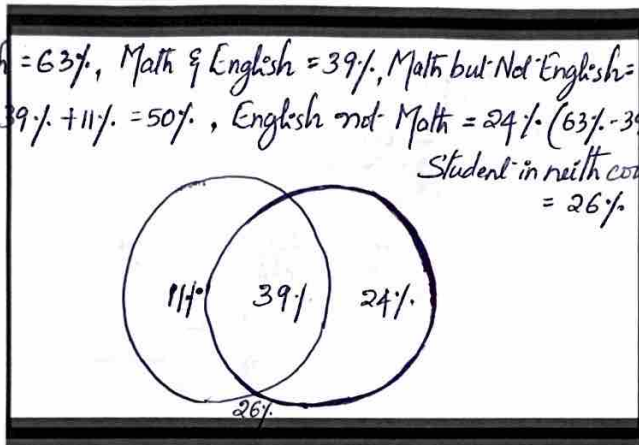 h = 63%, Math & English = 39%, Math but Not English =
39% + 11% = 50%, English not Math = 24% (63% - 39
Student in neith cou
= 26%
11% 39% 24%.
26%